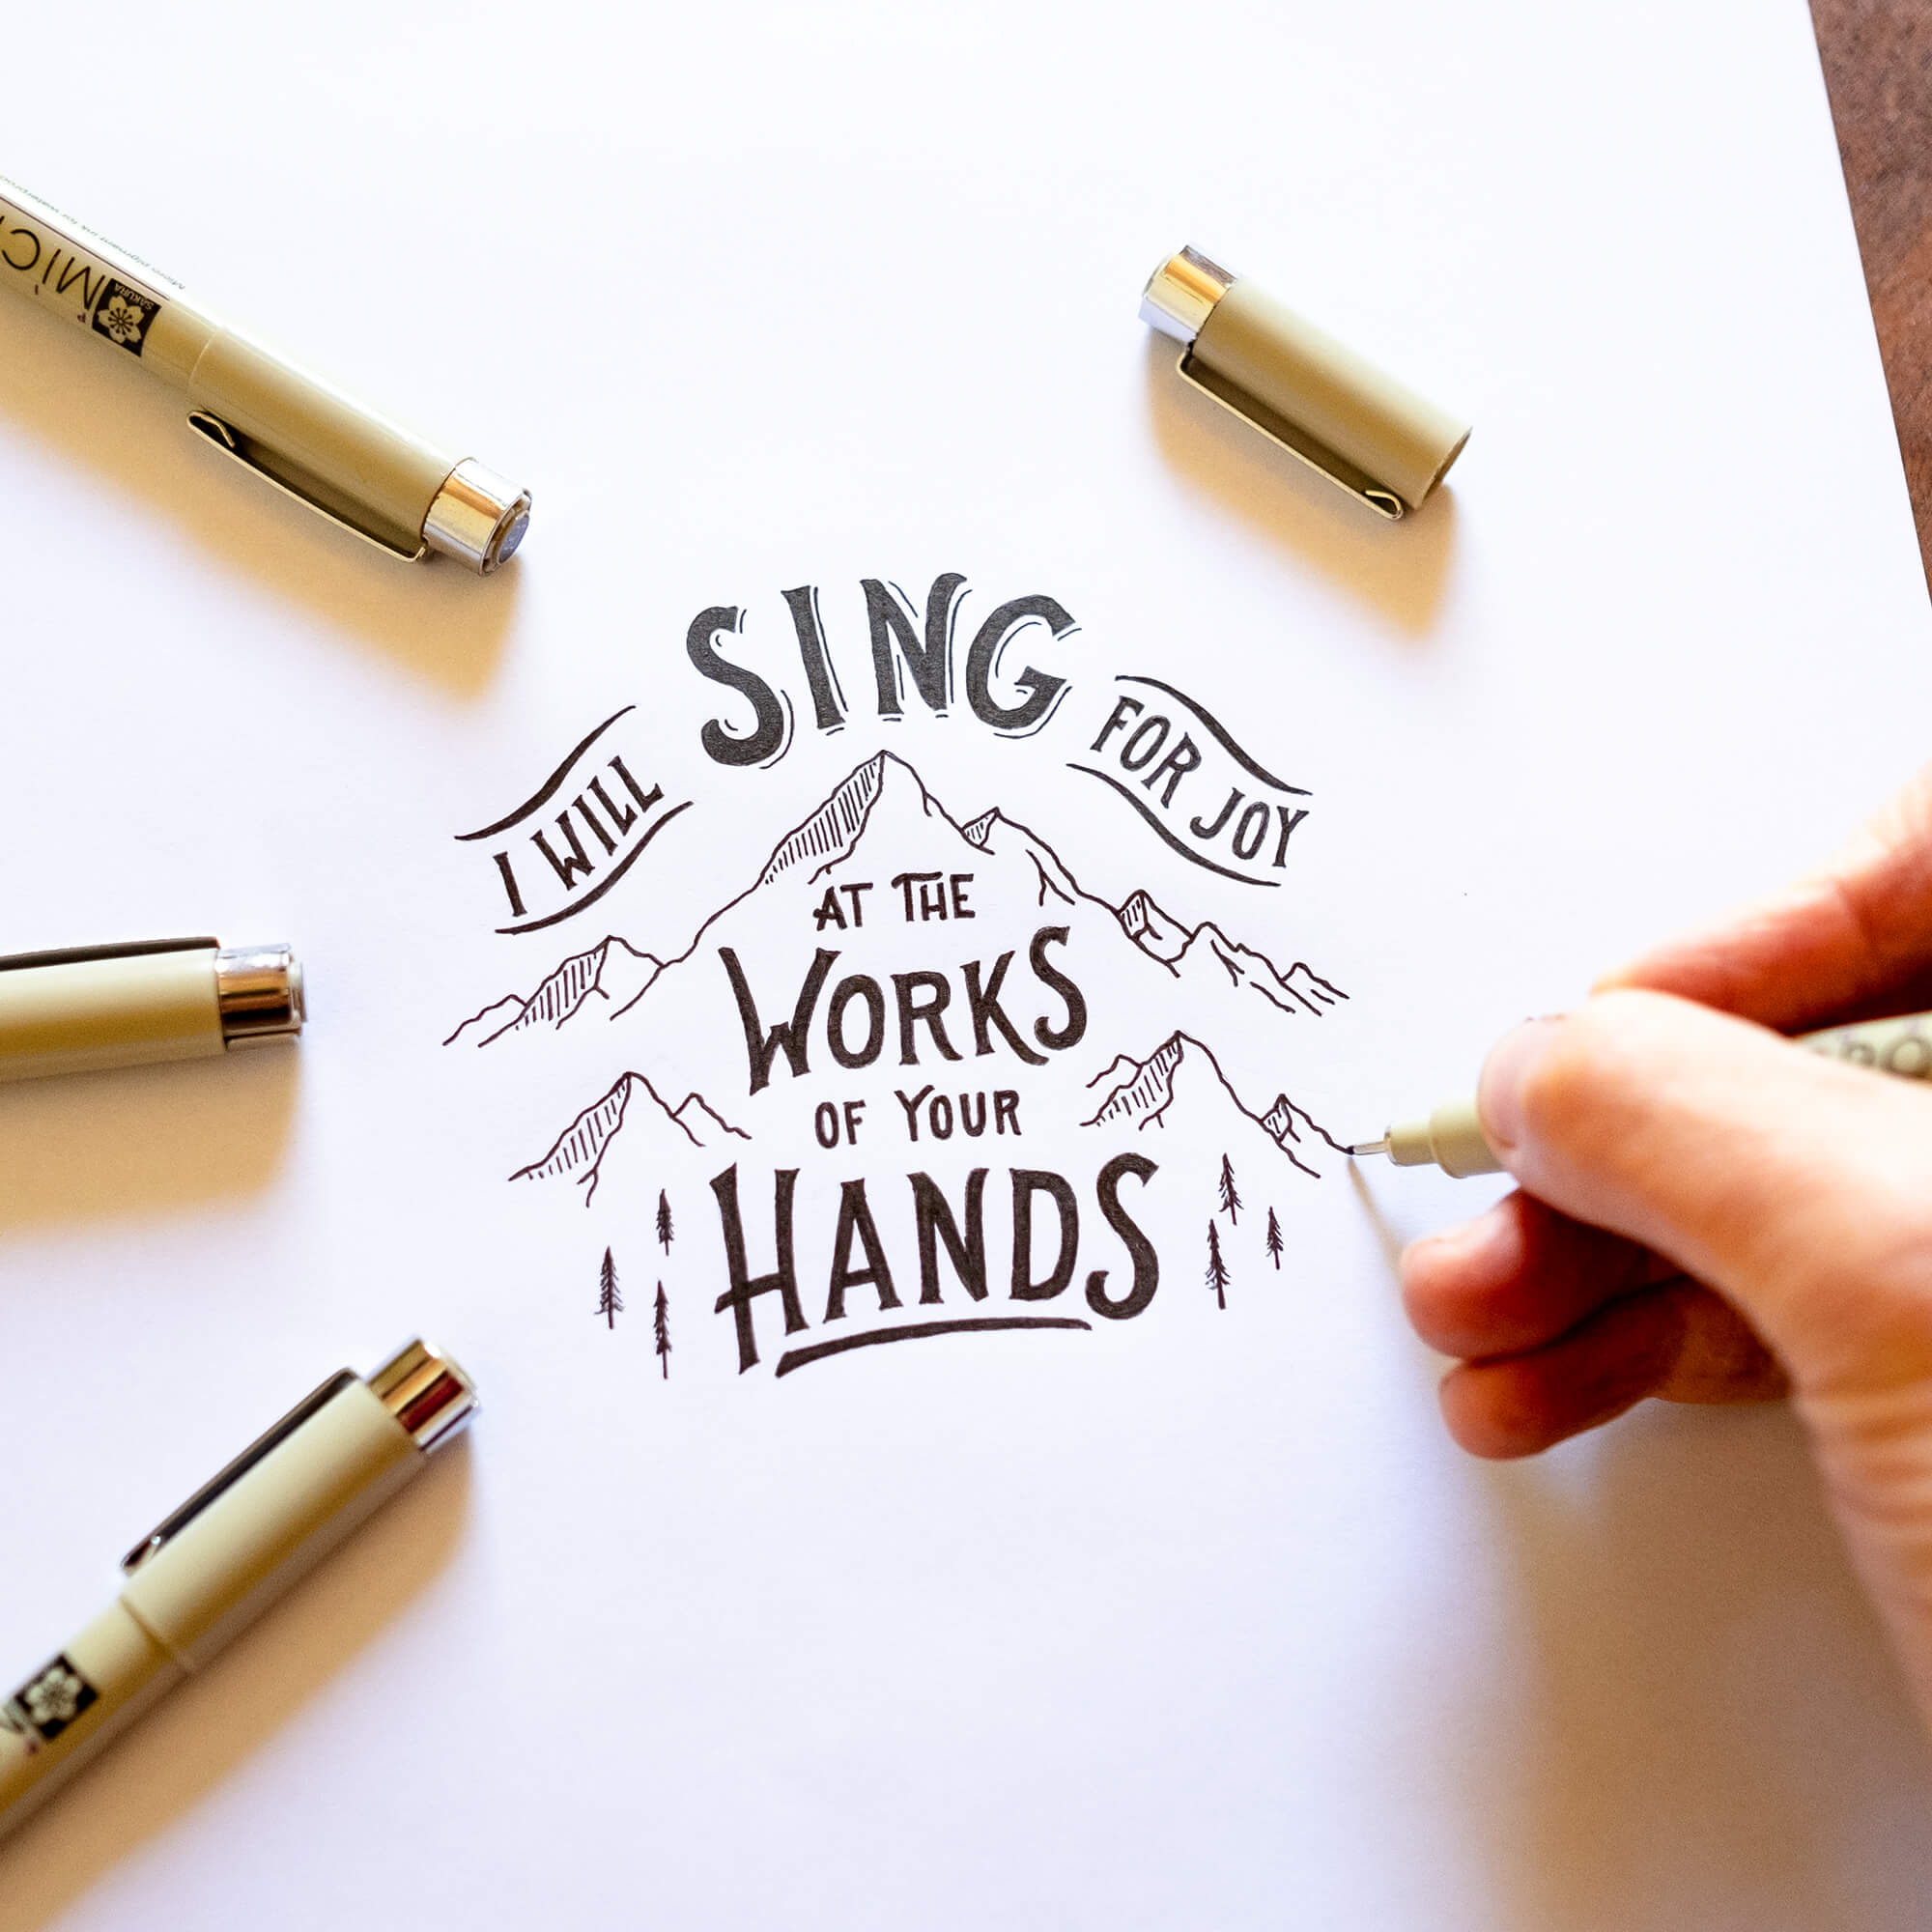 I WILL
SING
FOR JOY
AT THE
WORKS
OF YOUR
HANDS
SAKURA